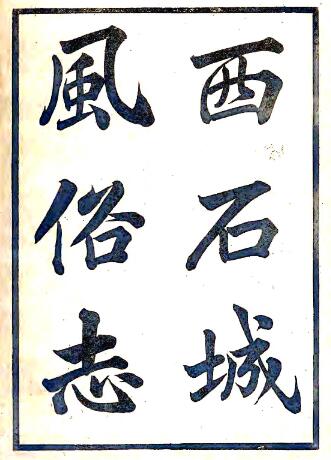 西石城
風俗志